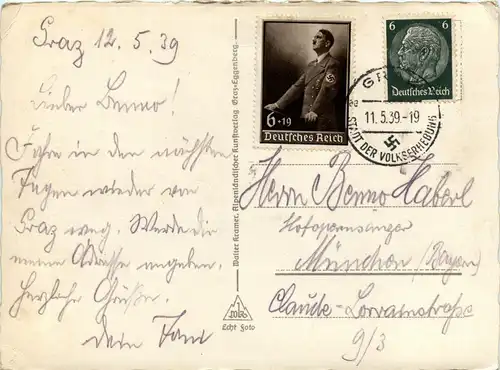 Graz 12.5.39
Lieber Benno!
Fahre in den nächsten
Tagen wieder von
Graz weg. Werde dir
meine Adresse angeben.
Herzliche Grüße
dein
Echt Foto
Walter Kramer, Alpenländischer Kunstverlag, Graz-Eggenberg.
6+19
Deutsches Reich
6 6
Deutsches Reich
GRAZ
11.5.39-19
STADT DER VOLKSERHEBUNG
Herrn Benno Haberl
Hofopernsänger
München (Bayern)
Claude-Lorrainstraße
9/3